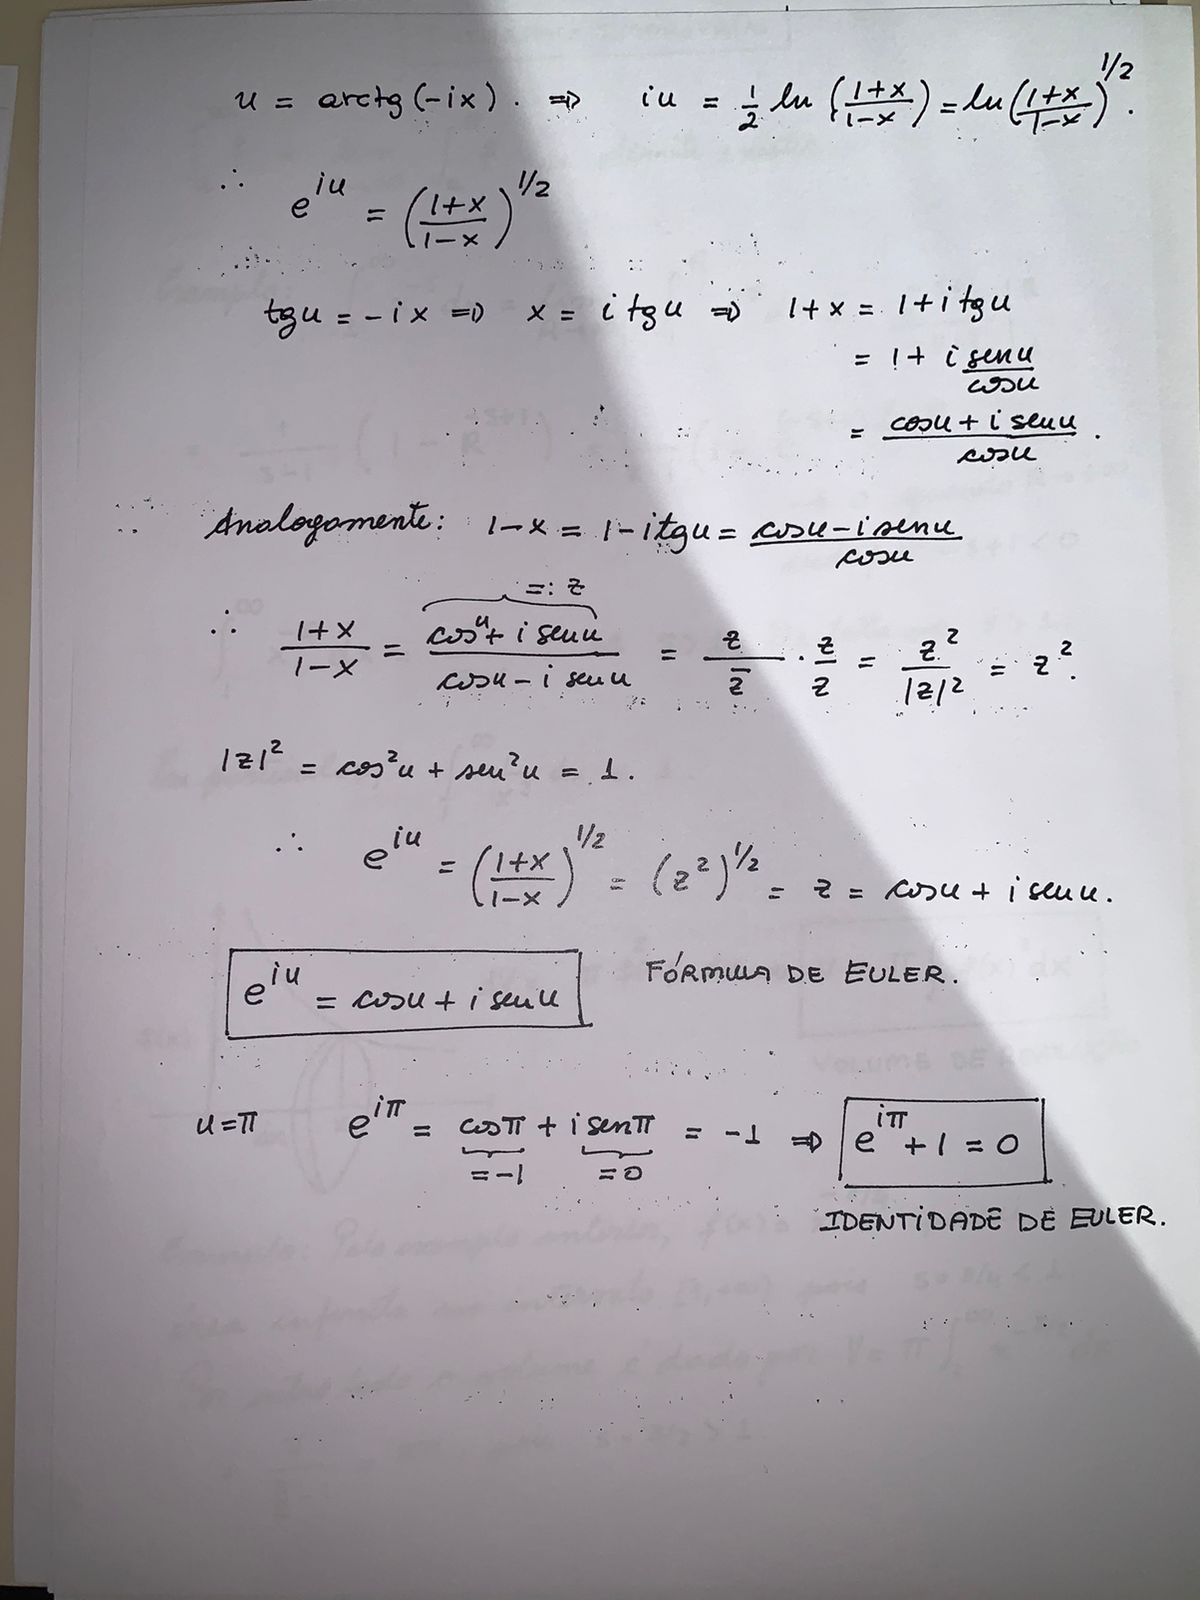 u = arctg(-ix). ⇒ iu = 1/2 ln ((1+x)/(1-x)) = ln((1+x)/(1-x))^1/2.
∴ e^iu = ((1+x)/(1-x))^1/2
tgu = -ix ⇒ x = i tgu ⇒ 1+x = 1+i tgu
= 1 + i senu/cosu
= (cosu + i senu)/cosu.
Analogamente: 1-x = 1-i tgu = (cosu - i senu)/cosu
=: z
∴ (1+x)/(1-x) = (cosu + i senu)/(cosu - i senu) = z/z̅ · z/z = z²/|z|² = z².
|z|² = cos²u + sen²u = 1.
∴ e^iu = ((1+x)/(1-x))^1/2 = (z²)^1/2 = z = cosu + i senu.
e^iu = cosu + i senu FÓRMULA DE EULER.
u=π e^iπ = cosπ + i senπ = -1 ⇒ e^iπ + 1 = 0
=-1 =0
IDENTIDADE DE EULER.